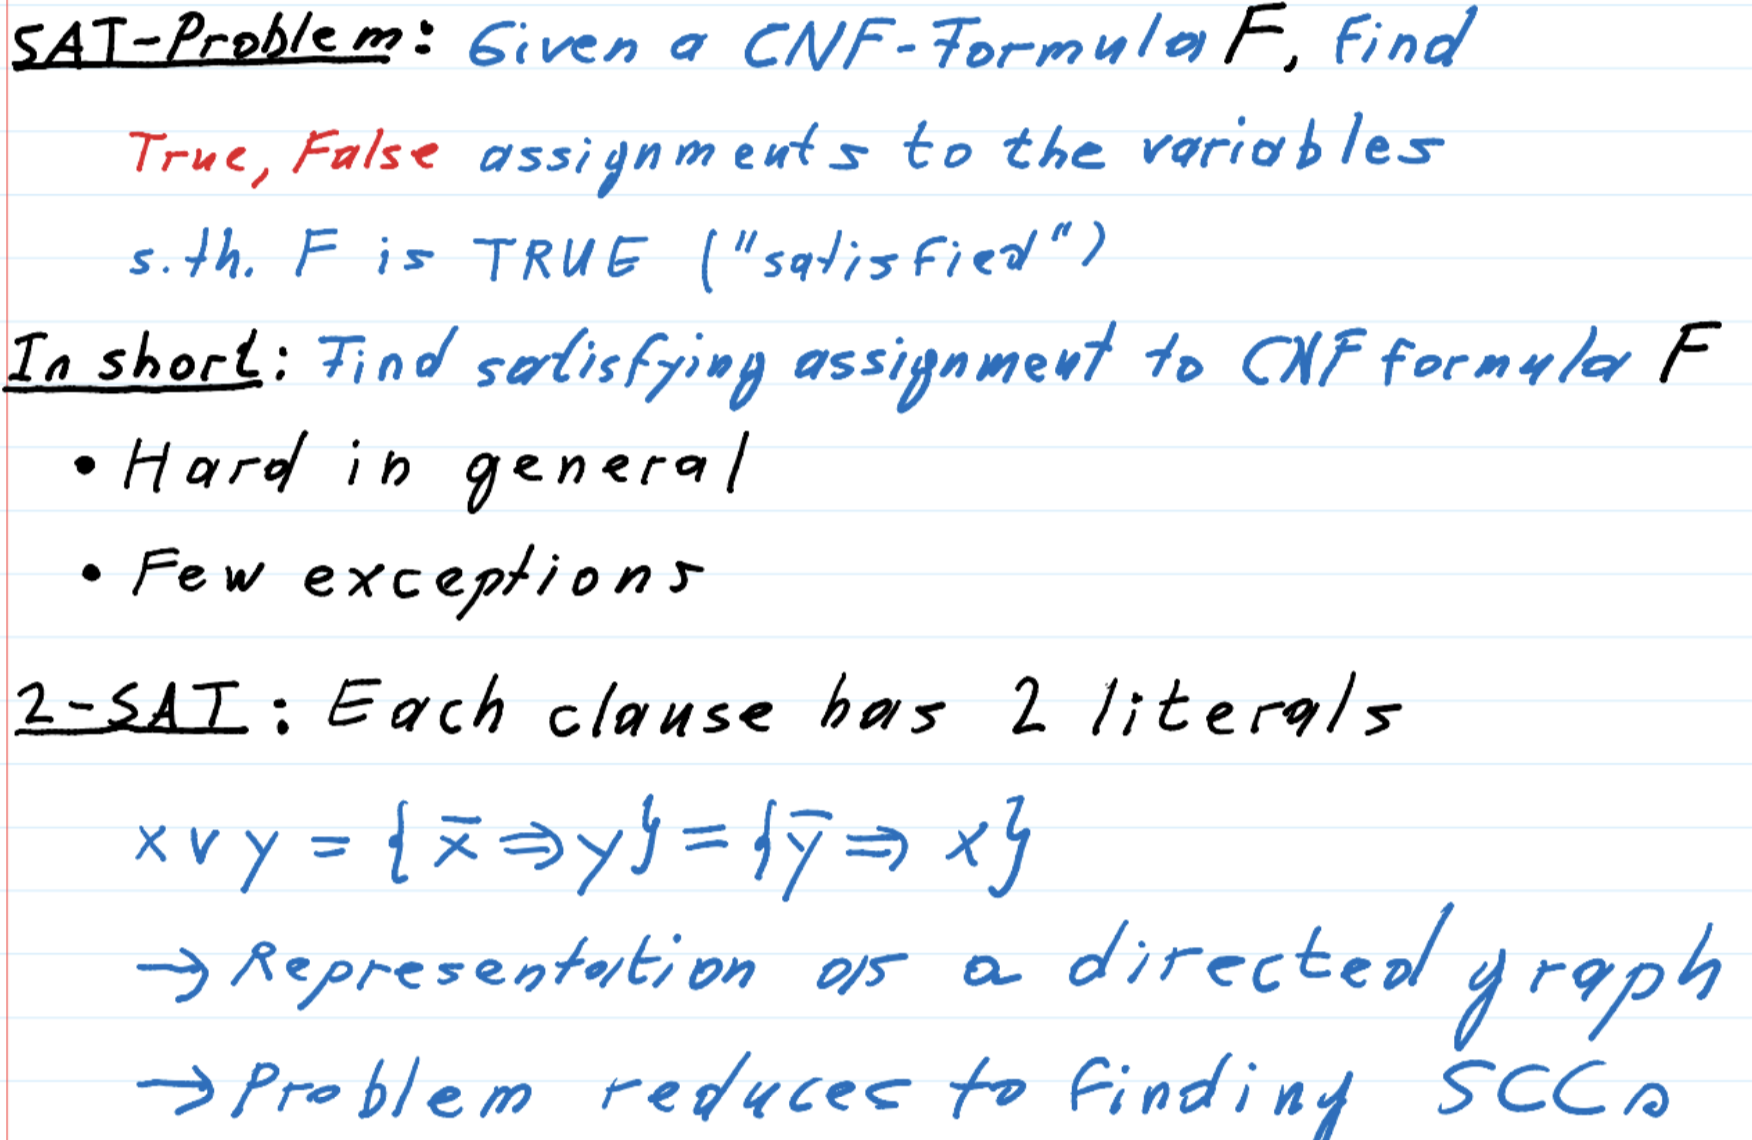 SAT-Problem: Given a CNF-Formula F, find
True, False assignments to the variables
s.th. F is TRUE ("satisfied")
In short: Find satisfying assignment to CNF formula F
• Hard in general
• Few exceptions
2-SAT: Each clause has 2 literals
x ∨ y = { x̅ ⇒ y} = {y̅ ⇒ x}
→ Representation as a directed graph
→ Problem reduces to finding SCCs